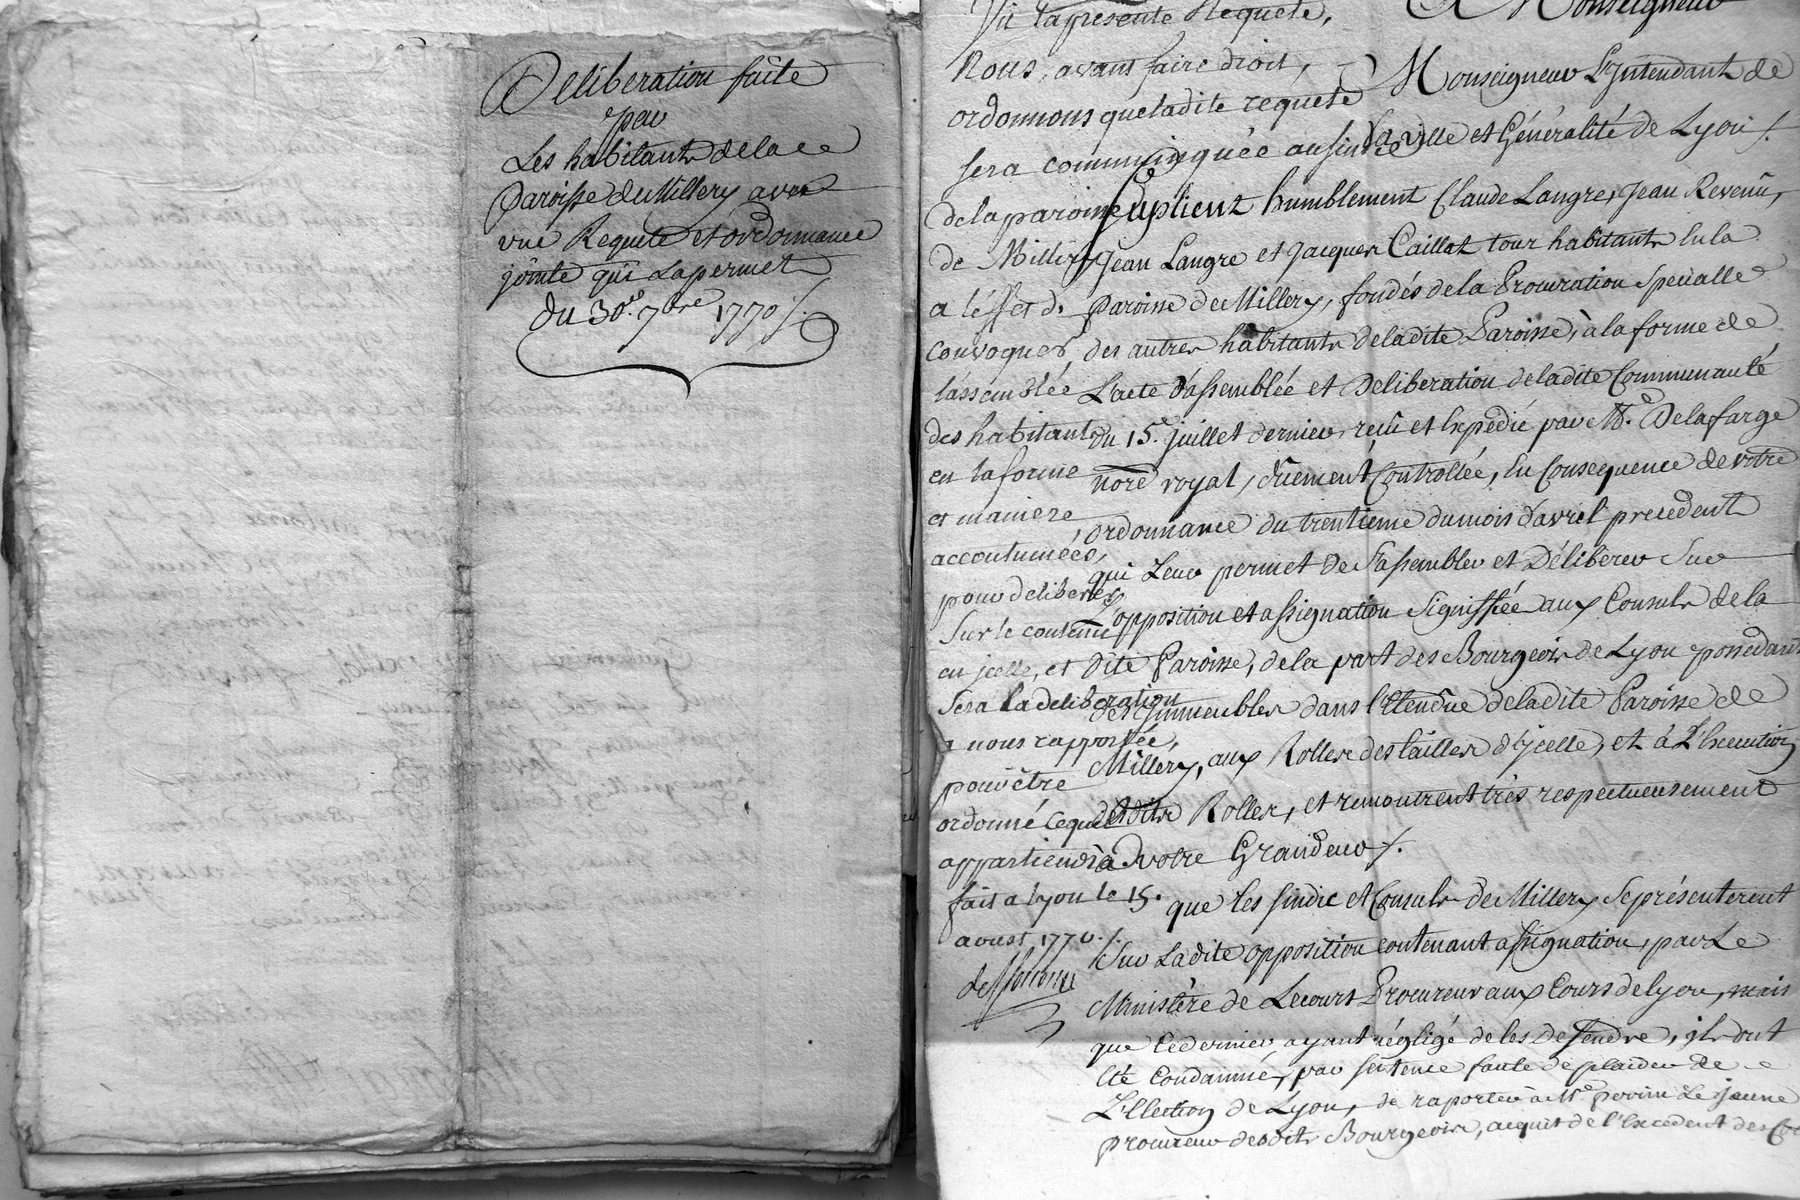 Deliberation faite
par
Les habitants de la
Paroisse de Millery avec
une Requete et ordonnance
jointe qui la permet
du 30e. 7bre 1770 /.
Vû la presente Requete,
Nous, avant faire droit,
ordonnons que ladite requete
sera communiquée au sindic
de la paroisse
de Millery
a l'effet de
convoquer
l'assemblée
des habitants
en la forme
et maniere
accoutumées,
pour deliberer
sur le contenu
en jcelle, et
sera la deliberation
a nous rapportée,
pour être
ordonné ce que
appartiendra
fait a Lyon le 15.
aoust 1770 ./.
A Monseigneur
Monseigneur L'Jntendant de
la ville et Généralité de Lyon /.
Suplient humblement Claude Langre, Jean Revenû,
Jean Langre et Jacques Caillot tous habitants en la
Paroisse de Millery, fondés de la Procuration Specialle
des autres habitants de ladite Paroisse, à la forme de
L'acte d'assemblée et Deliberation de ladite Communauté
du 15e. juillet dernier, reçû et Expedié par Me. Delafarge
nore royal, dûement Controllée, En Consequence de votre
ordonnance du trentieme du mois d'avril precedent
qui Leur permet de s'assembler et Déliberer Sur
L'opposition et assignation Signiffiée aux Consuls de la
dite Paroisse, de la part des Bourgeois de Lyon possedants
des Jmmeubles dans l'Etendûe de ladite Paroisse de
Millery, aux Rolles des tailles d'Jcelle, et à L'Execution
desdits Rolles, et remontrent très respectueusement
à votre Grandeur /.
que les sindic et Consuls de Millery se présenterent
Sur Ladite opposition contenant assignation, par Le
Ministère de Lecourt Procureur aux Cours de Lyon, mais
que Ce dernier ayant négligé de les deffendre, ils ont
été Condamnés, par sentence faute de plaider de
L'Election de Lyon, de raporter à Me. perrin Le Jeune
procureur desdits Bourgeois, acquit de l'Excedent des